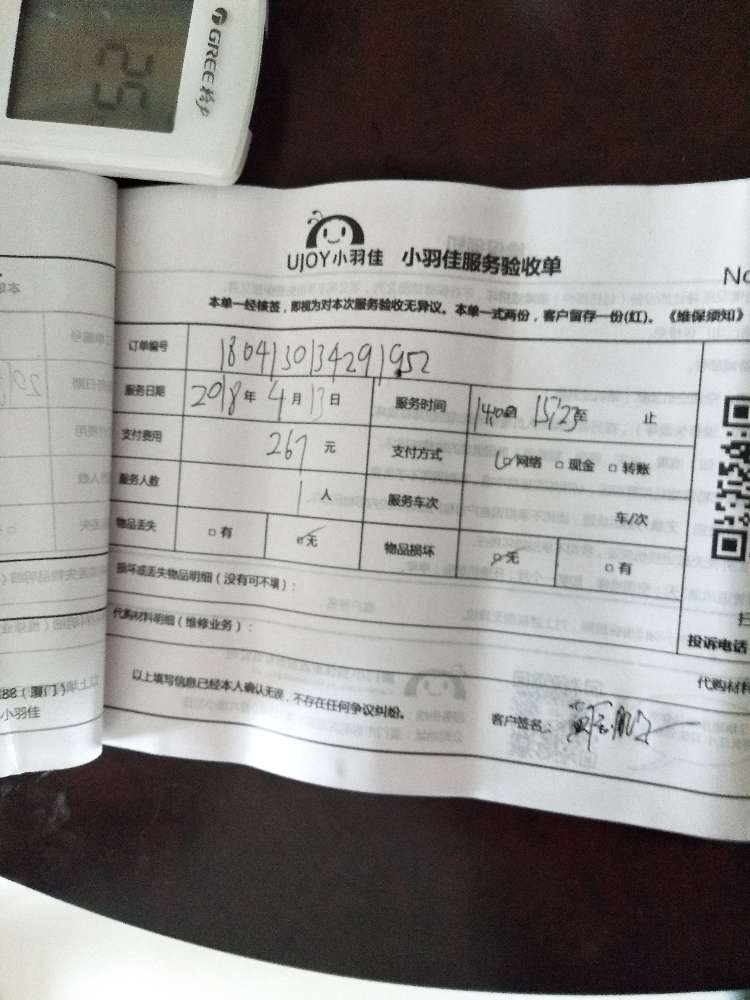 GREE 格力
25
UJOY小羽佳 小羽佳服务验收单
No
本单一经核签，即视为对本次服务验收无异议。本单一式两份，客户留存一份(红)。《维保须知》
订单编号 180413034291952
服务日期 2018年4月13日 服务时间 14:00 15:23至 止
支付费用 267 元 支付方式 □网络 □现金 □转账
服务人数 1 人 服务车次 车/次
物品丢失 □有 □无 物品损坏 □无 □有
损坏或丢失物品明细（没有可不填）：
代购材料明细（维修业务）：
投诉电话
代购材料
以上填写信息已经本人确认无误，不存在任何争议纠纷。 客户签名：
88（厦门）
小羽佳